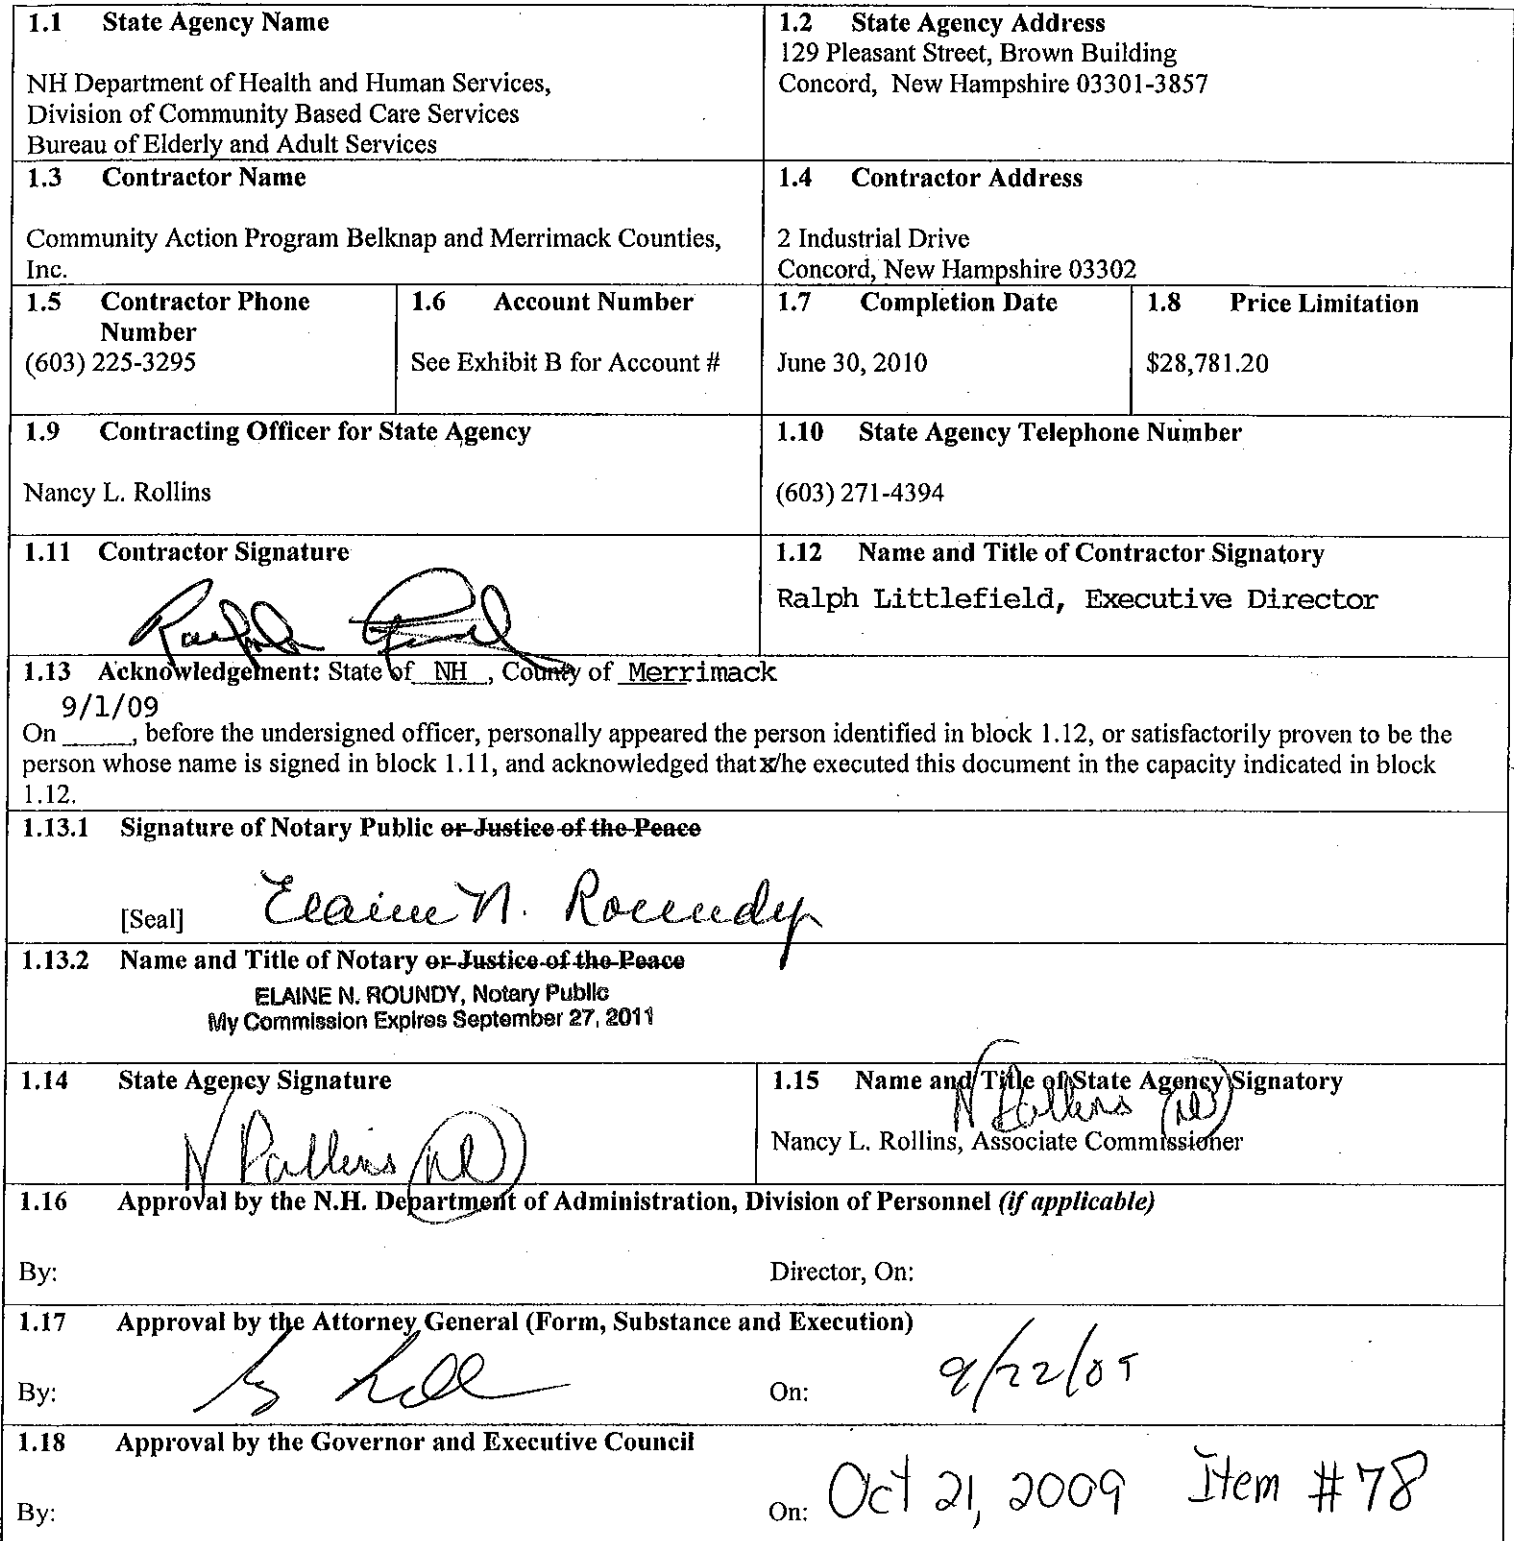 1.1 State Agency Name
NH Department of Health and Human Services,
Division of Community Based Care Services
Bureau of Elderly and Adult Services
1.2 State Agency Address
129 Pleasant Street, Brown Building
Concord, New Hampshire 03301-3857
1.3 Contractor Name
Community Action Program Belknap and Merrimack Counties,
Inc.
1.4 Contractor Address
2 Industrial Drive
Concord, New Hampshire 03302
1.5 Contractor Phone
Number
(603) 225-3295
1.6 Account Number
See Exhibit B for Account #
1.7 Completion Date
June 30, 2010
1.8 Price Limitation
$28,781.20
1.9 Contracting Officer for State Agency
Nancy L. Rollins
1.10 State Agency Telephone Number
(603) 271-4394
1.11 Contractor Signature
1.12 Name and Title of Contractor Signatory
Ralph Littlefield, Executive Director
1.13 Acknowledgement: State of NH , County of Merrimack
9/1/09
On ______, before the undersigned officer, personally appeared the person identified in block 1.12, or satisfactorily proven to be the
person whose name is signed in block 1.11, and acknowledged that x/he executed this document in the capacity indicated in block
1.12.
1.13.1 Signature of Notary Public or Justice of the Peace
[Seal] Elaine N. Roundy
1.13.2 Name and Title of Notary or Justice of the Peace
ELAINE N. ROUNDY, Notary Public
My Commission Expires September 27, 2011
1.14 State Agency Signature
N Rollins
1.15 Name and Title of State Agency Signatory
N Rollins
Nancy L. Rollins, Associate Commissioner
1.16 Approval by the N.H. Department of Administration, Division of Personnel (if applicable)
By: Director, On:
1.17 Approval by the Attorney General (Form, Substance and Execution)
By: On: 9/22/09
1.18 Approval by the Governor and Executive Council
By: On: Oct 21, 2009 Item #78